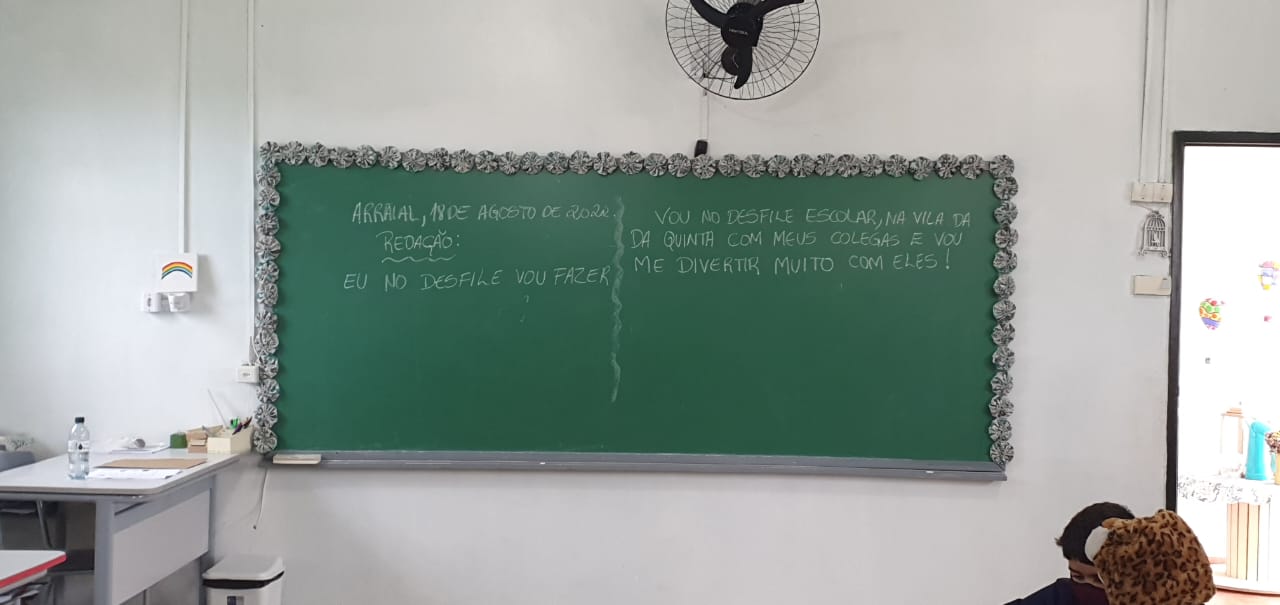 ARRAIAL, 18 DE AGOSTO DE 2022.
REDAÇÃO:
EU NO DESFILE VOU FAZER
?
VOU NO DESFILE ESCOLAR, NA VILA DA
DA QUINTA COM MEUS COLEGAS E VOU
ME DIVERTIR MUITO COM ELES!